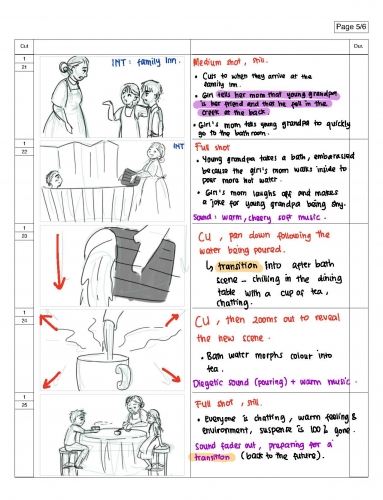 Page 5/6
Cut
Dur.
1
21
INT: family Inn.
Medium shot, still.
• Cuts to when they arrive at the
family inn.
• Girl tells her mom that young grandpa
is her friend and that he fell in the
creek at the back.
• Girl's mom tells young grandpa to quickly
go to the bathroom.
1
22
INT
Full shot
• Young grandpa takes a bath, embarassed
because the girl's mom walks inside to
pour more hot water.
• Girl's mom laughs off and makes
a joke for young grandpa being shy.
Sound: warm, cheery soft music.
1
23
CU, pan down following the
water being poured.
↳ transition into after bath
scene - chilling in the dining
table with a cup of tea,
chatting.
1
24
CU, then zooms out to reveal
the new scene.
• Bath water morphs colour into
tea.
Diegetic sound (pouring) + warm music.
1
25
Full shot, still.
• Everyone is chatting, warm feeling &
environment, suspense is 100% gone.
Sound fades out, preparing for a
transition (back to the future).